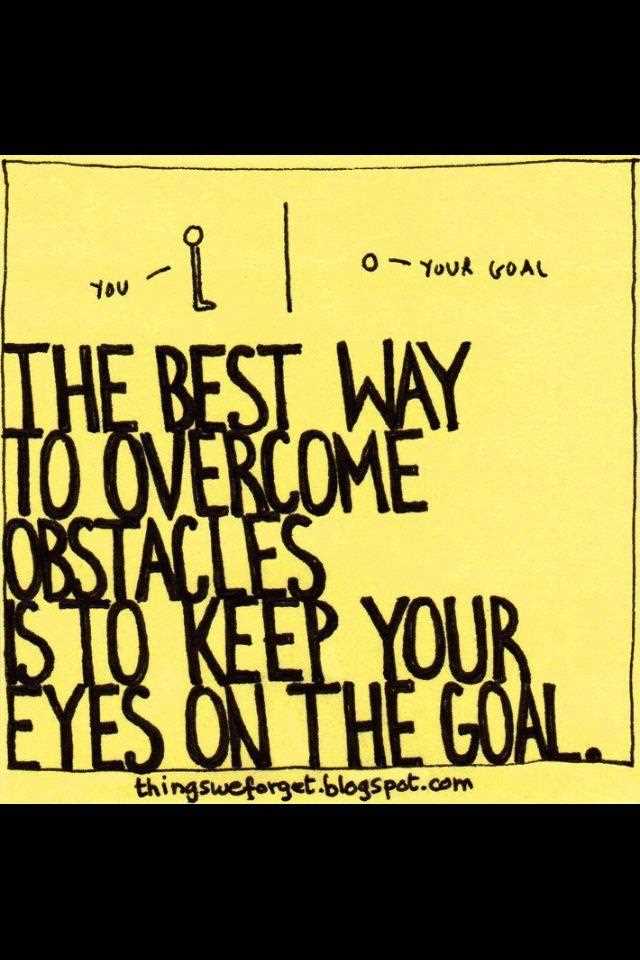 YOU
YOUR GOAL
THE BEST WAY
TO OVERCOME
OBSTACLES
IS TO KEEP YOUR
EYES ON THE GOAL.
thingsweforget.blogspot.com